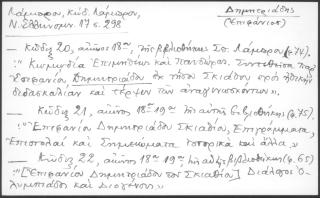 Λάμπρου, Κώδ. Λάμπρου,
Ν. Ελληνομν. 17 σ. 298
Δημητριάδης
(Επιφάνιος)
— Κώδιξ 20, αιώνος 18ου, της βιβλιοθήκης Σπ. Λάμπρου (σ. 74).
: "Κωμωδία Επιμηθέως και Πανδώρας. Συντεθείσα παρ'
Επιφανίου Δημητριάδου εκ νήσου Σκιάθου προς ηθικήν
διδασκαλίαν και τέρψιν των αναγινωσκόντων".
— Κώδιξ 21, αιών. 18ου-19ου της αυτής βιβλιοθήκης (σ. 75).
: "Επιφανίου Δημητριάδου Σκιαθίου, Επιγράμματα,
Επιστολαί και Σημειώματα ιστορικά και άλλα."
— Κώδιξ 22, αιών. 18ου 19ου της αυτής βιβλιοθήκης (σ. 65)
: "[Επιφανίου Δημητριάδου του Σκιαθίου] Διάλογος Ο-
λυμπιάδος και Διογένους."